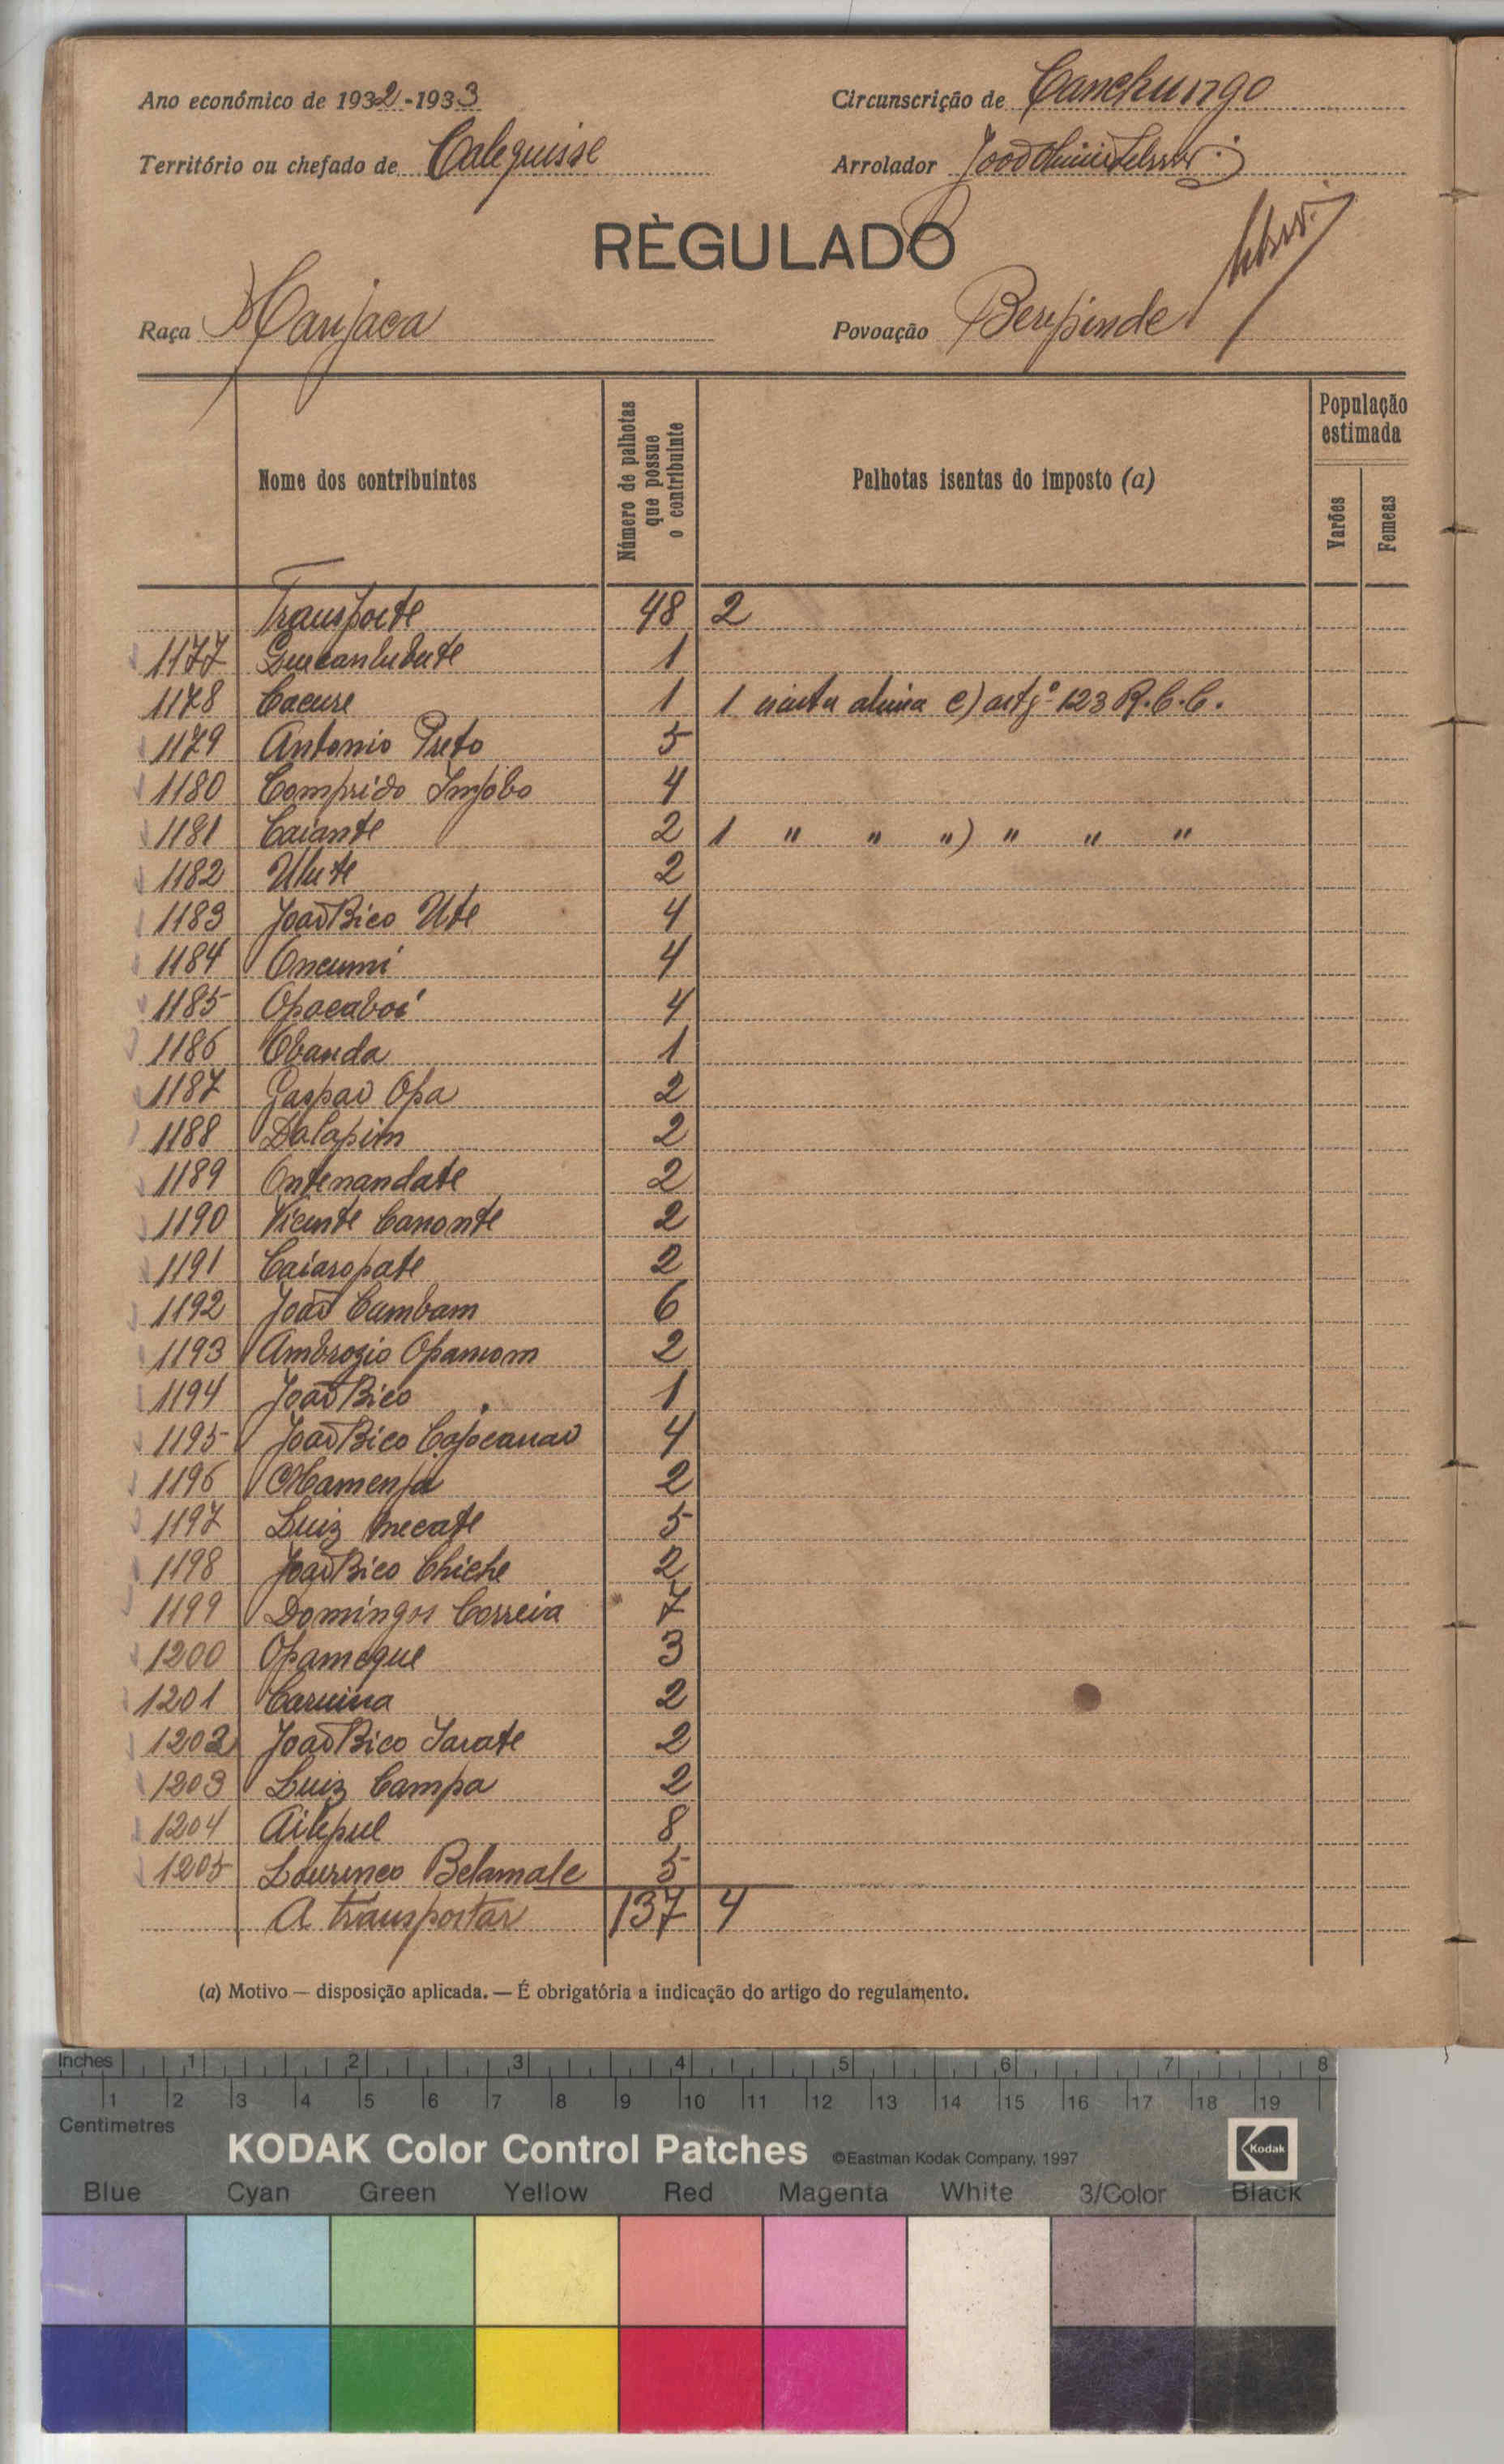 Ano económico de 1932-1933
Circunscrição de Canchungo
Território ou chefado de Calequisse
Arrolador
RÈGULADO
Raça Manjaca
Povoação
Nome dos contribuintes
Número de palhotas que possue o contribuinte
Palhotas isentas do imposto (a)
População estimada
Varões
Femeas
Transporte 48 2
1177 1
1178 Cacure 1 1 isenta alinea e) artgº 123 R.C.C.
1179 Antonio Preto 5
1180 Comprido Impobo 4
1181 Caiante 2 1 " " ") " " "
1182 Ulute 2
1183 João Bico Ute 4
1184 Oncumi 4
1185 Opacaboi 4
1186 Obanda 1
1187 Gaspar Opa 2
1188 Dalapim 2
1189 Ontenandate 2
1190 Vicente Canonte 2
1191 Caiaropate 2
1192 João Cambam 6
1193 Ambrozio 2
1194 João Bico 1
1195 João Bico 4
1196 2
1197 Luiz 5
1198 João Bico Chiche 2
1199 Domingos Correia 7
1200 Opameque 3
1201 2
1202 João Bico 2
1203 Luiz Campa 2
1204 8
1205 Lourenco Belamale 5
A transportar 137 4
(a) Motivo — disposição aplicada. — É obrigatória a indicação do artigo do regulamento.
Inches 1 2 3 4 5 6 7 8
1 2 3 4 5 6 7 8 9 10 11 12 13 14 15 16 17 18 19
Centimetres
KODAK Color Control Patches ©Eastman Kodak Company, 1997 Kodak
Blue Cyan Green Yellow Red Magenta White 3/Color Black